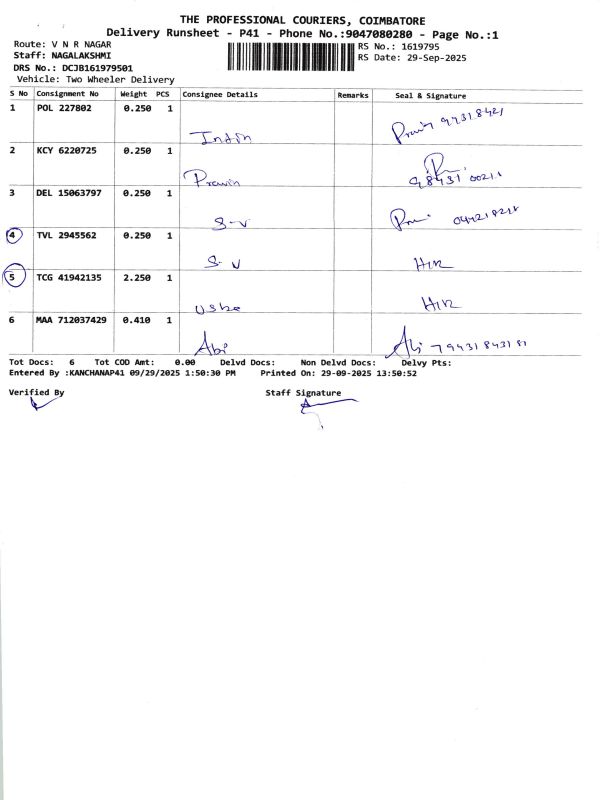 THE PROFESSIONAL COURIERS, COIMBATORE
Delivery Runsheet - P41 - Phone No.:9047080280 - Page No.:1
Route: V N R NAGAR RS No.: 1619795
Staff: NAGALAKSHMI RS Date: 29-Sep-2025
DRS No.: DCJB161979501
Vehicle: Two Wheeler Delivery
S No Consignment No Weight PCS Consignee Details Remarks Seal & Signature
1 POL 227802 0.250 1
2 KCY 6220725 0.250 1
Prawin
3 DEL 15063797 0.250 1
S-V
4 TVL 2945562 0.250 1
S-V
5 TCG 41942135 2.250 1
6 MAA 712037429 0.410 1
Abi Abi
Tot Docs: 6 Tot COD Amt: 0.00 Delvd Docs: Non Delvd Docs: Delvy Pts:
Entered By :KANCHANAP41 09/29/2025 1:50:30 PM Printed On: 29-09-2025 13:50:52
Verified By Staff Signature